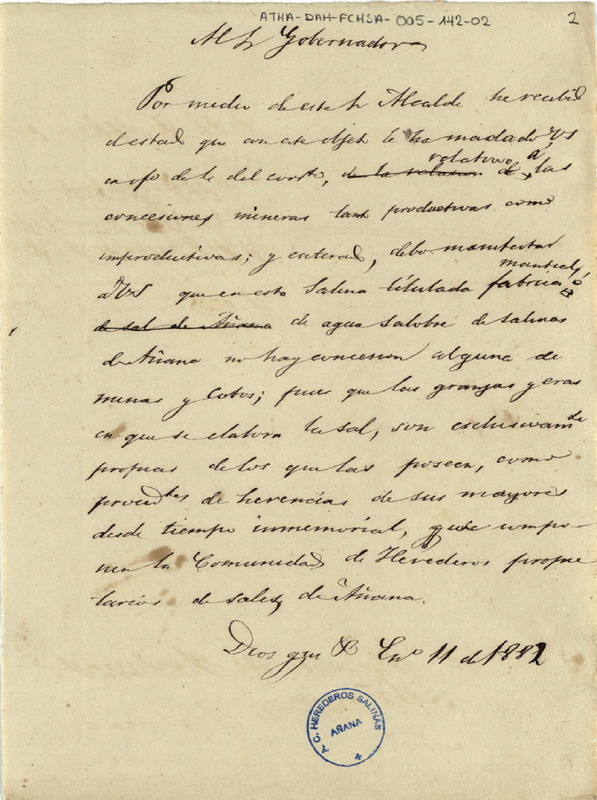 ATHA-DAH-FCHSA-005-142-02
2
Al Sr Gobernador
Por medio de este Sr Alcalde he recibido
el estado que con este objeto le ha mandado VS
en ofo de 4 del corrte, de la relacion de relativo a las
concesiones mineras tanto productivas como
improductivas; y enterado, debo manifestar
a VS que en esta Salina titulada fabrica manantial
de sal de Añana de agua salobre de salinas
de Añana no hay concesion alguna de
minas y Cotos; pues que las granjas y eras
en que se elabora la sal, son esclusivamte
propias de los que las poseen, como
procedtes de herencias de sus mayores
desde tiempo inmemorial, y que compo-
nen la Comunidad de Herederos propie
tarios de sales de Añana.
Dios gue Eno 11 de 1882
A. C. HEREDEROS SALINAS
AÑANA